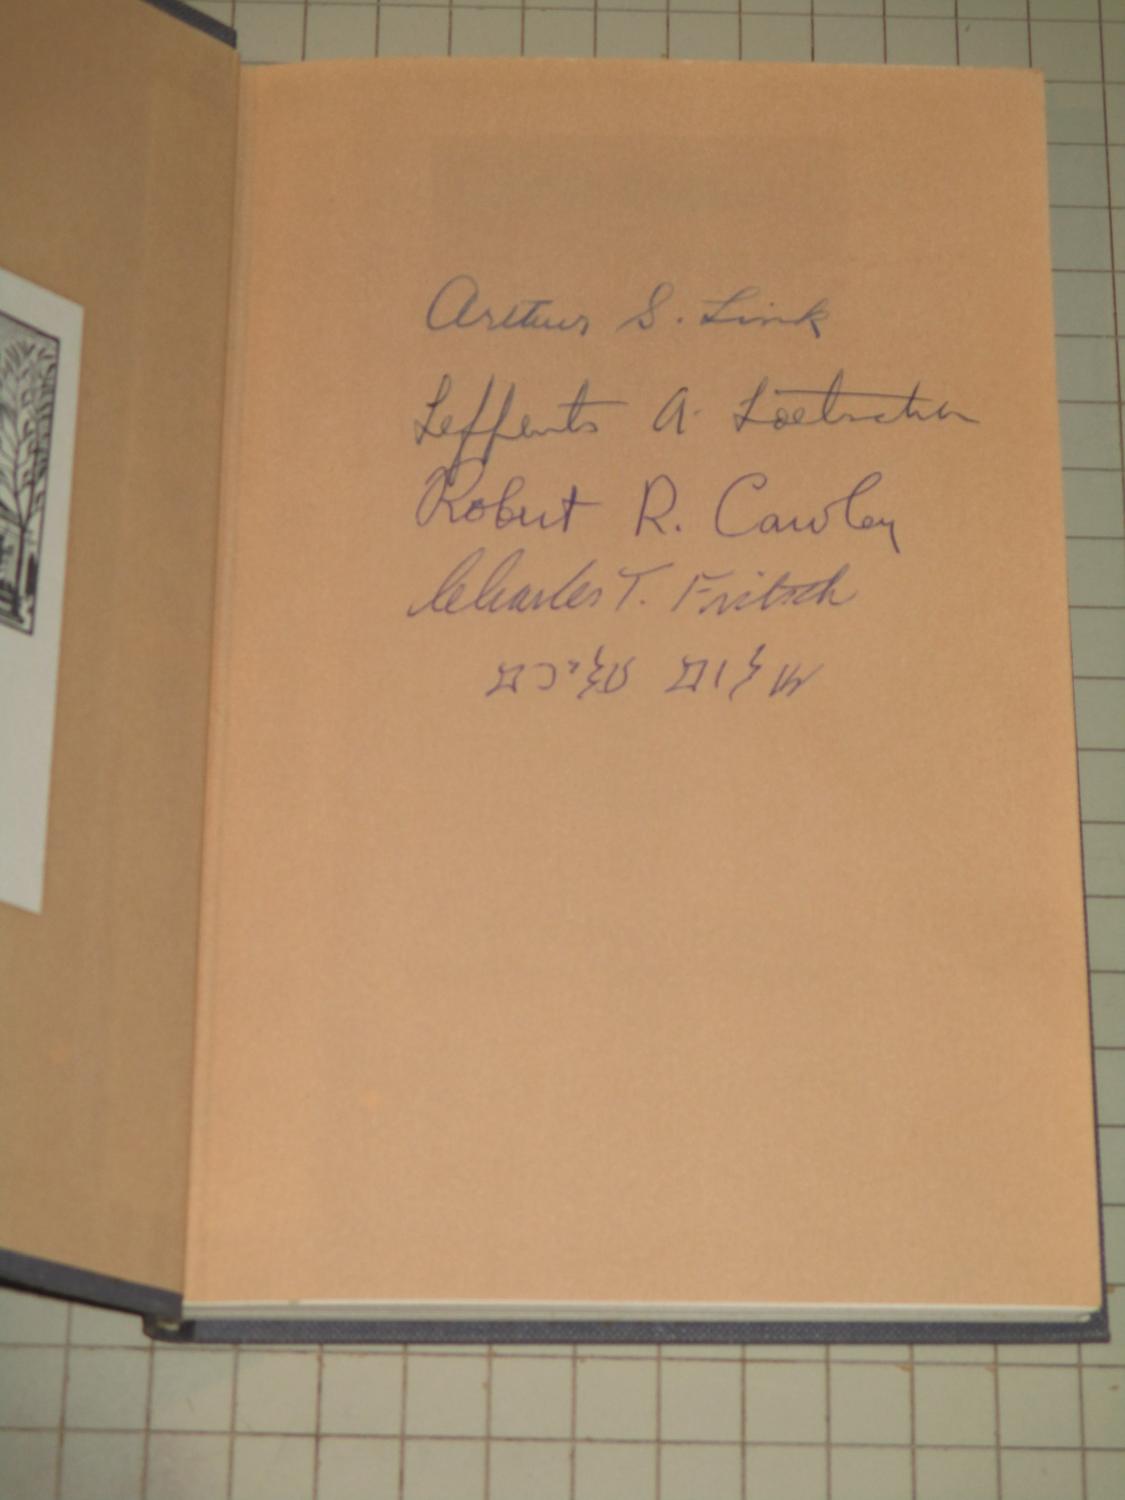 Arthur S. Link
Lefferts A. Loetscher
Robert R. Cawley
Charles T. Fritsch
שלום עליכם